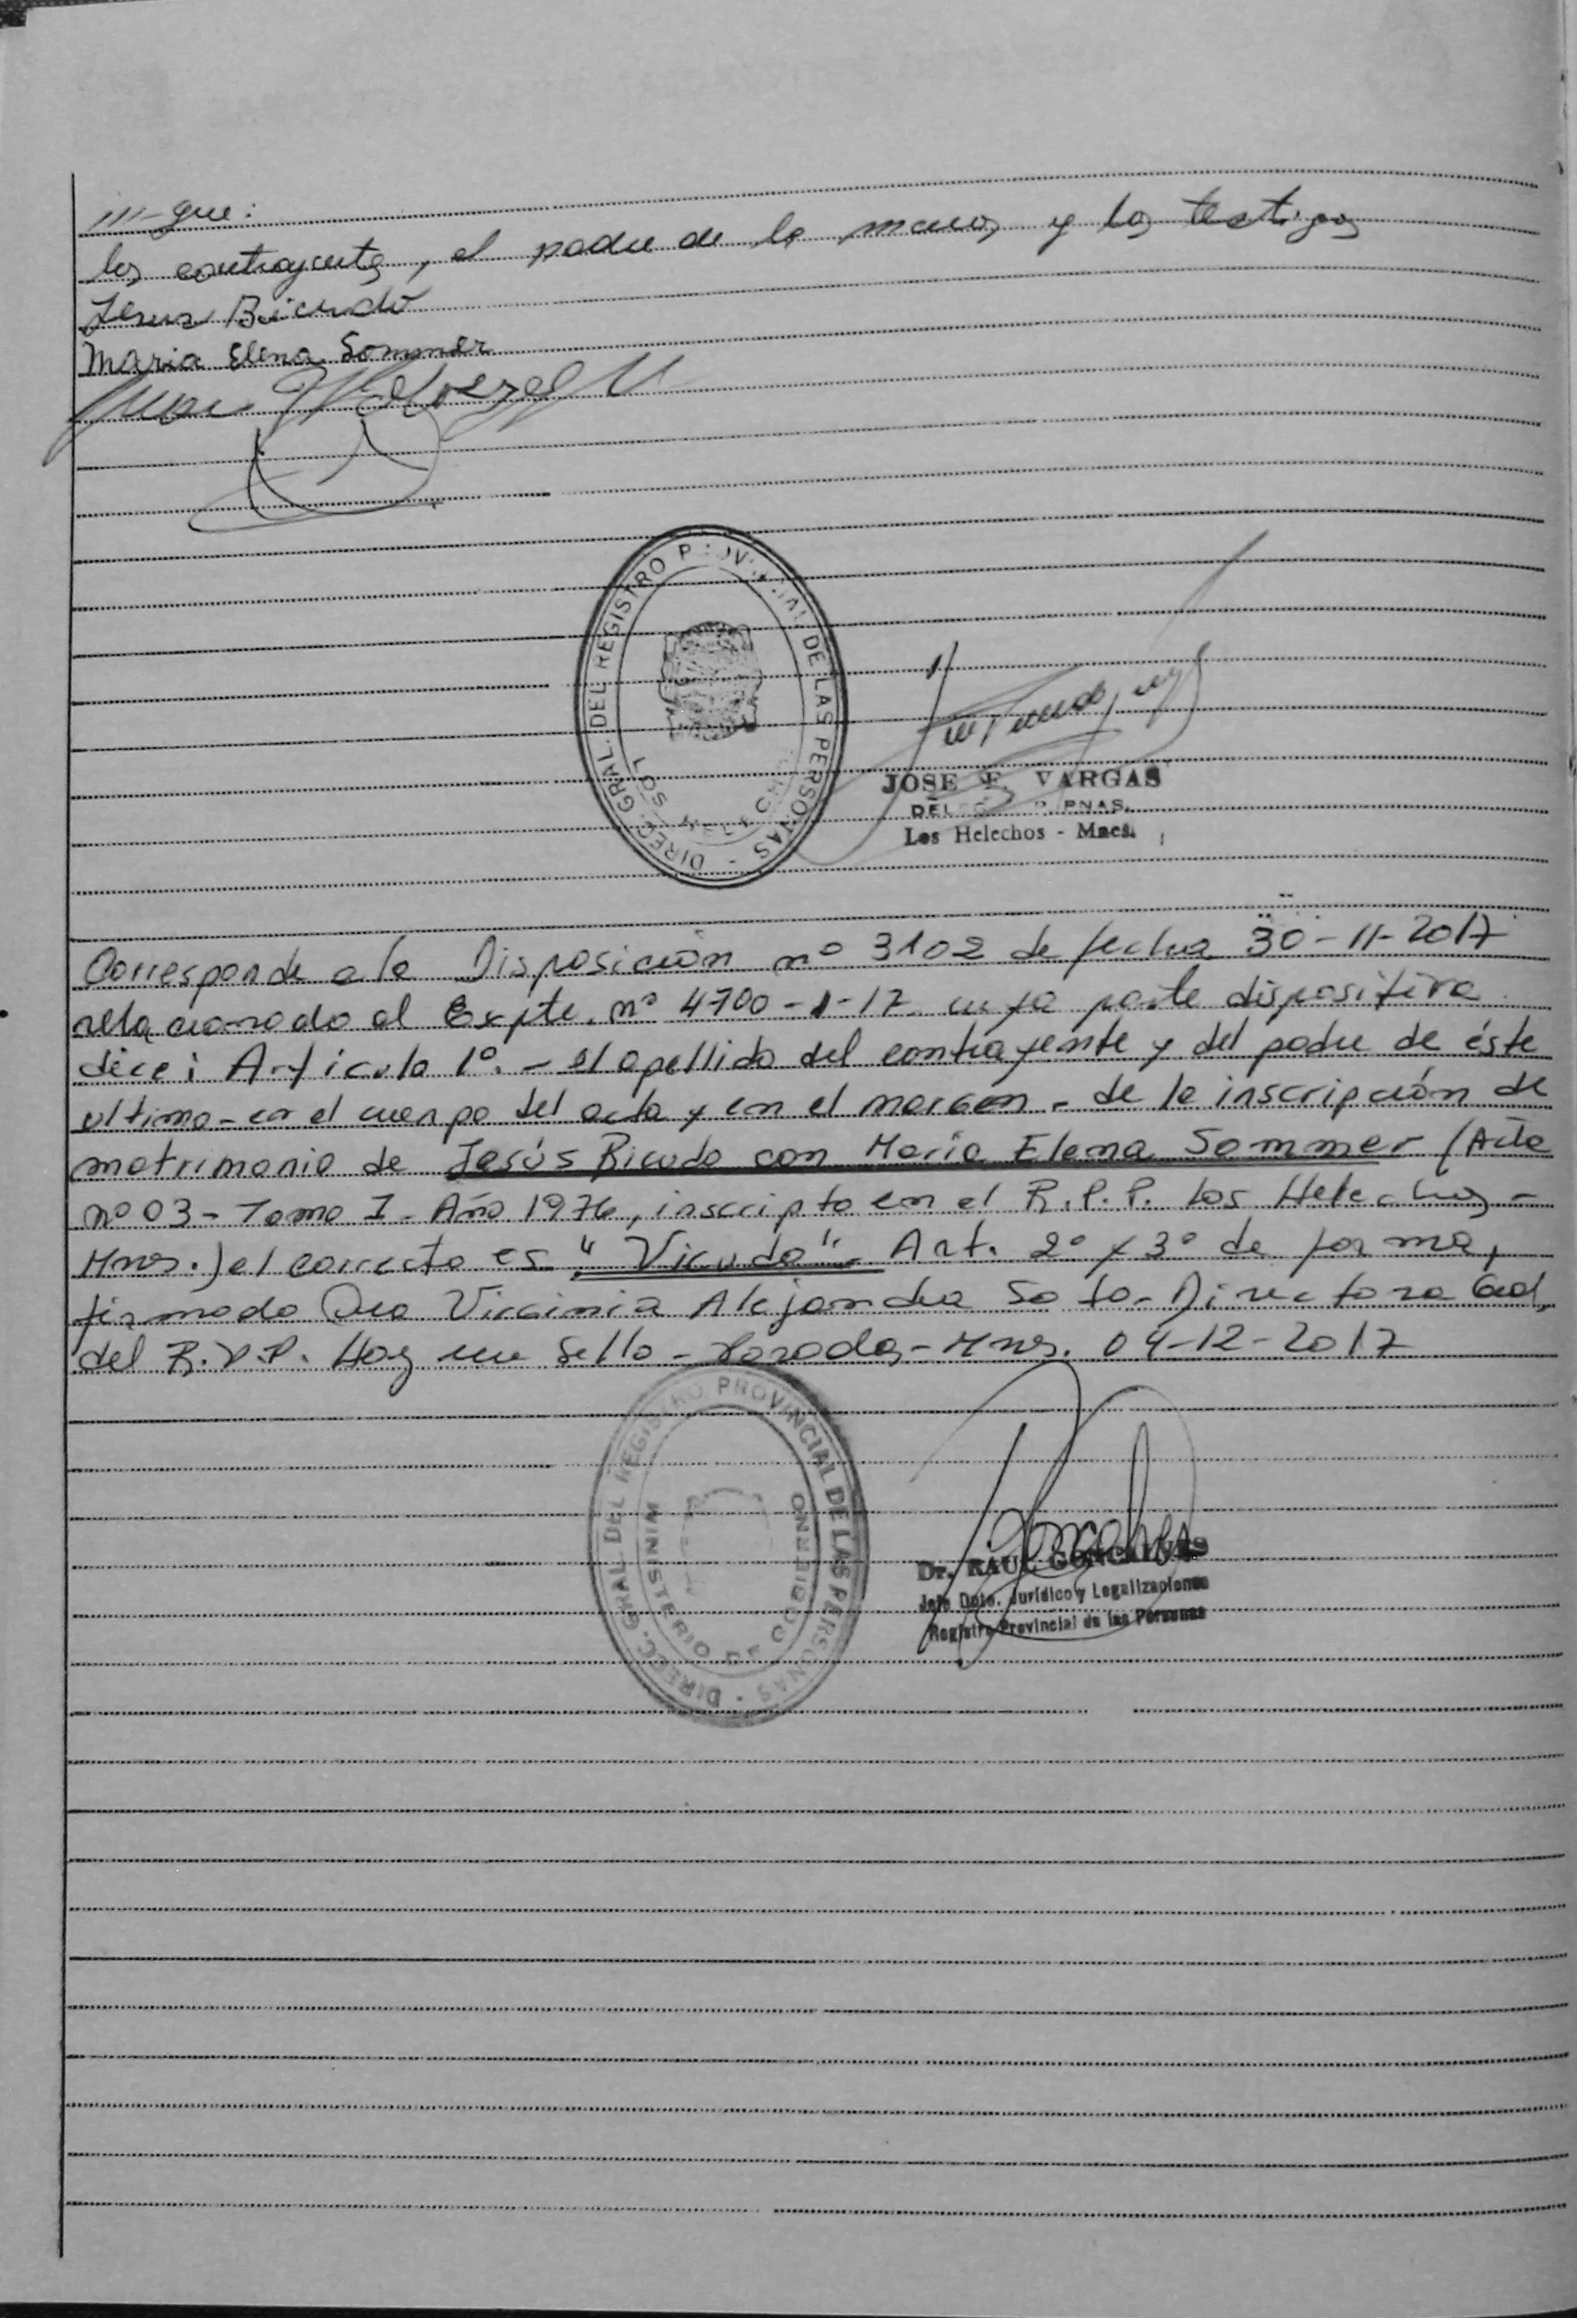 ///-que:
los contrayentes, el padre de la menor, y los testigos
Jesus Bicudo
Maria Elena Sommer
DIREC. GRAL. DEL REGISTRO PROVINCIAL DE LAS PERSONAS -
LOS HELECHOS
JOSE F. VARGAS
Los Helechos - Mnes.
Corresponde a la Disposición nº 3102 de fecha 30-11-2017
relacionado al Expte. nº 4700-1-17 cuya parte dispositiva
dice: Articulo 1º.- el apellido del contrayente y del padre de éste
ultimo - en el cuerpo del acta y en el margen - de la inscripción de
matrimonio de Jesús Bicudo con Maria Elena Sommer (Acta
nº 03 - Tomo I - Año 1976, inscripto en el R.P.P. Los Helechos -
Mnes.) el correcto es "Vicudo". Art. 2º y 3º de forma,
firmado Dra Virginia Alejandra Soto - Directora Gral,
del R.P.P. Hay un Sello - Posadas - Mnes. 04-12-2017
DIREC. GRAL. DEL REGISTRO PROVINCIAL DE LAS PERSONAS -
MINISTERIO DE GOBIERNO
Dr. RAUL GONCALVES
Jefe Dpto. Jurídico y Legalizaciones
Registro Provincial de las Personas